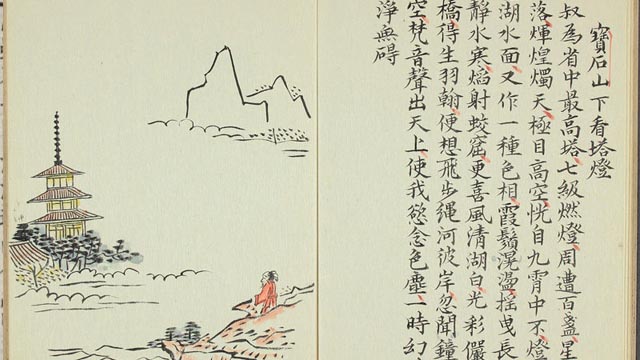 寶石山下看塔燈
叔為省中最高塔七級燃燈周遭百盞星
落煇煌燭天極目高空恍自九霄中不燈
湖水面又作一種色相霞鬚滉盪搖曳長
靜水寒焰射蛟窟更喜風清湖白光彩儼
橋得生羽翰便想飛步繩河彼岸忽聞鐘
空梵音聲出天上使我慾念色塵一時幻
淨無碍